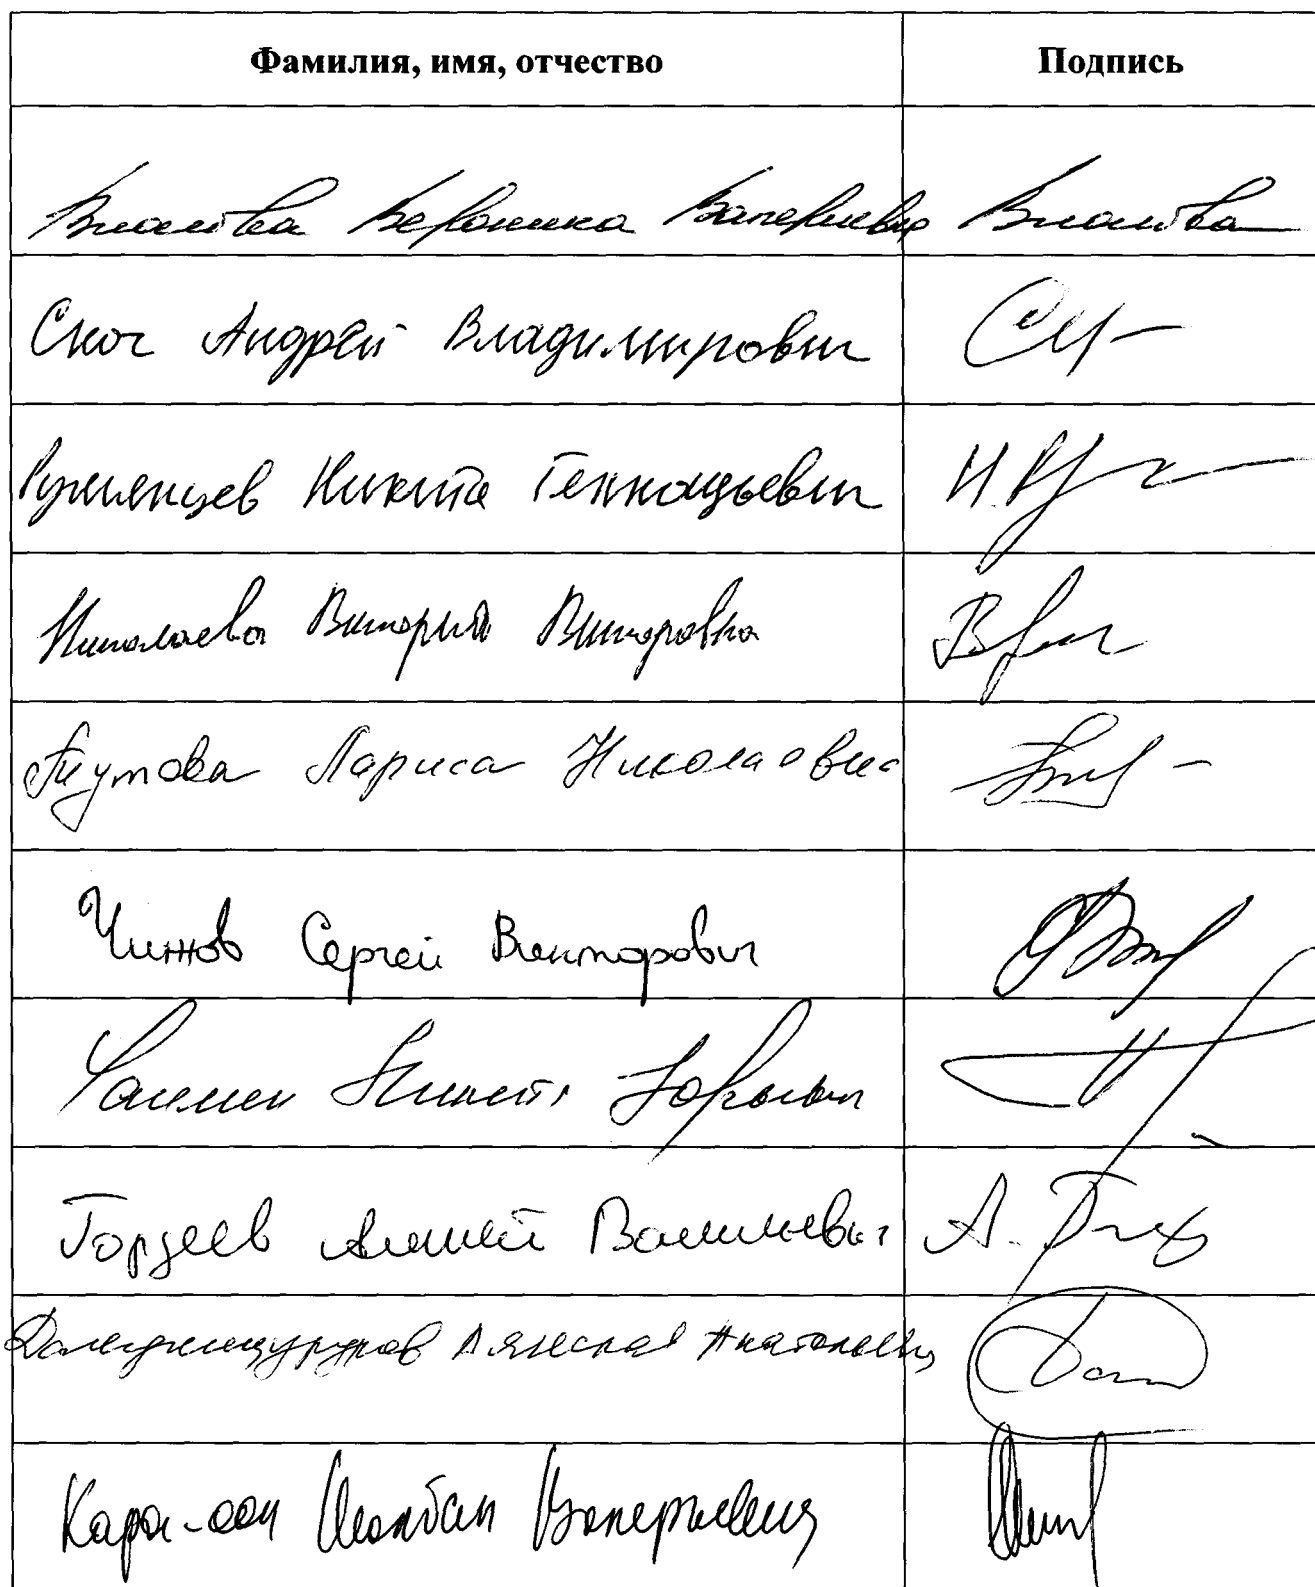 Фамилия, имя, отчество Подпись
Власова Вероника Валериевна Власова
Скоч Андрей Владимирович
Румянцев Никита Геннадьевич
Николаева Виктория Викторовна
Тутова Лариса Николаевна
Чижов Сергей Викторович
Чаплин Никита Юрьевич
Гордеев Алексей Васильевич
Дамдинцурунов Вячеслав Анатольевич
Кара-оол Шолбан Валерьевич